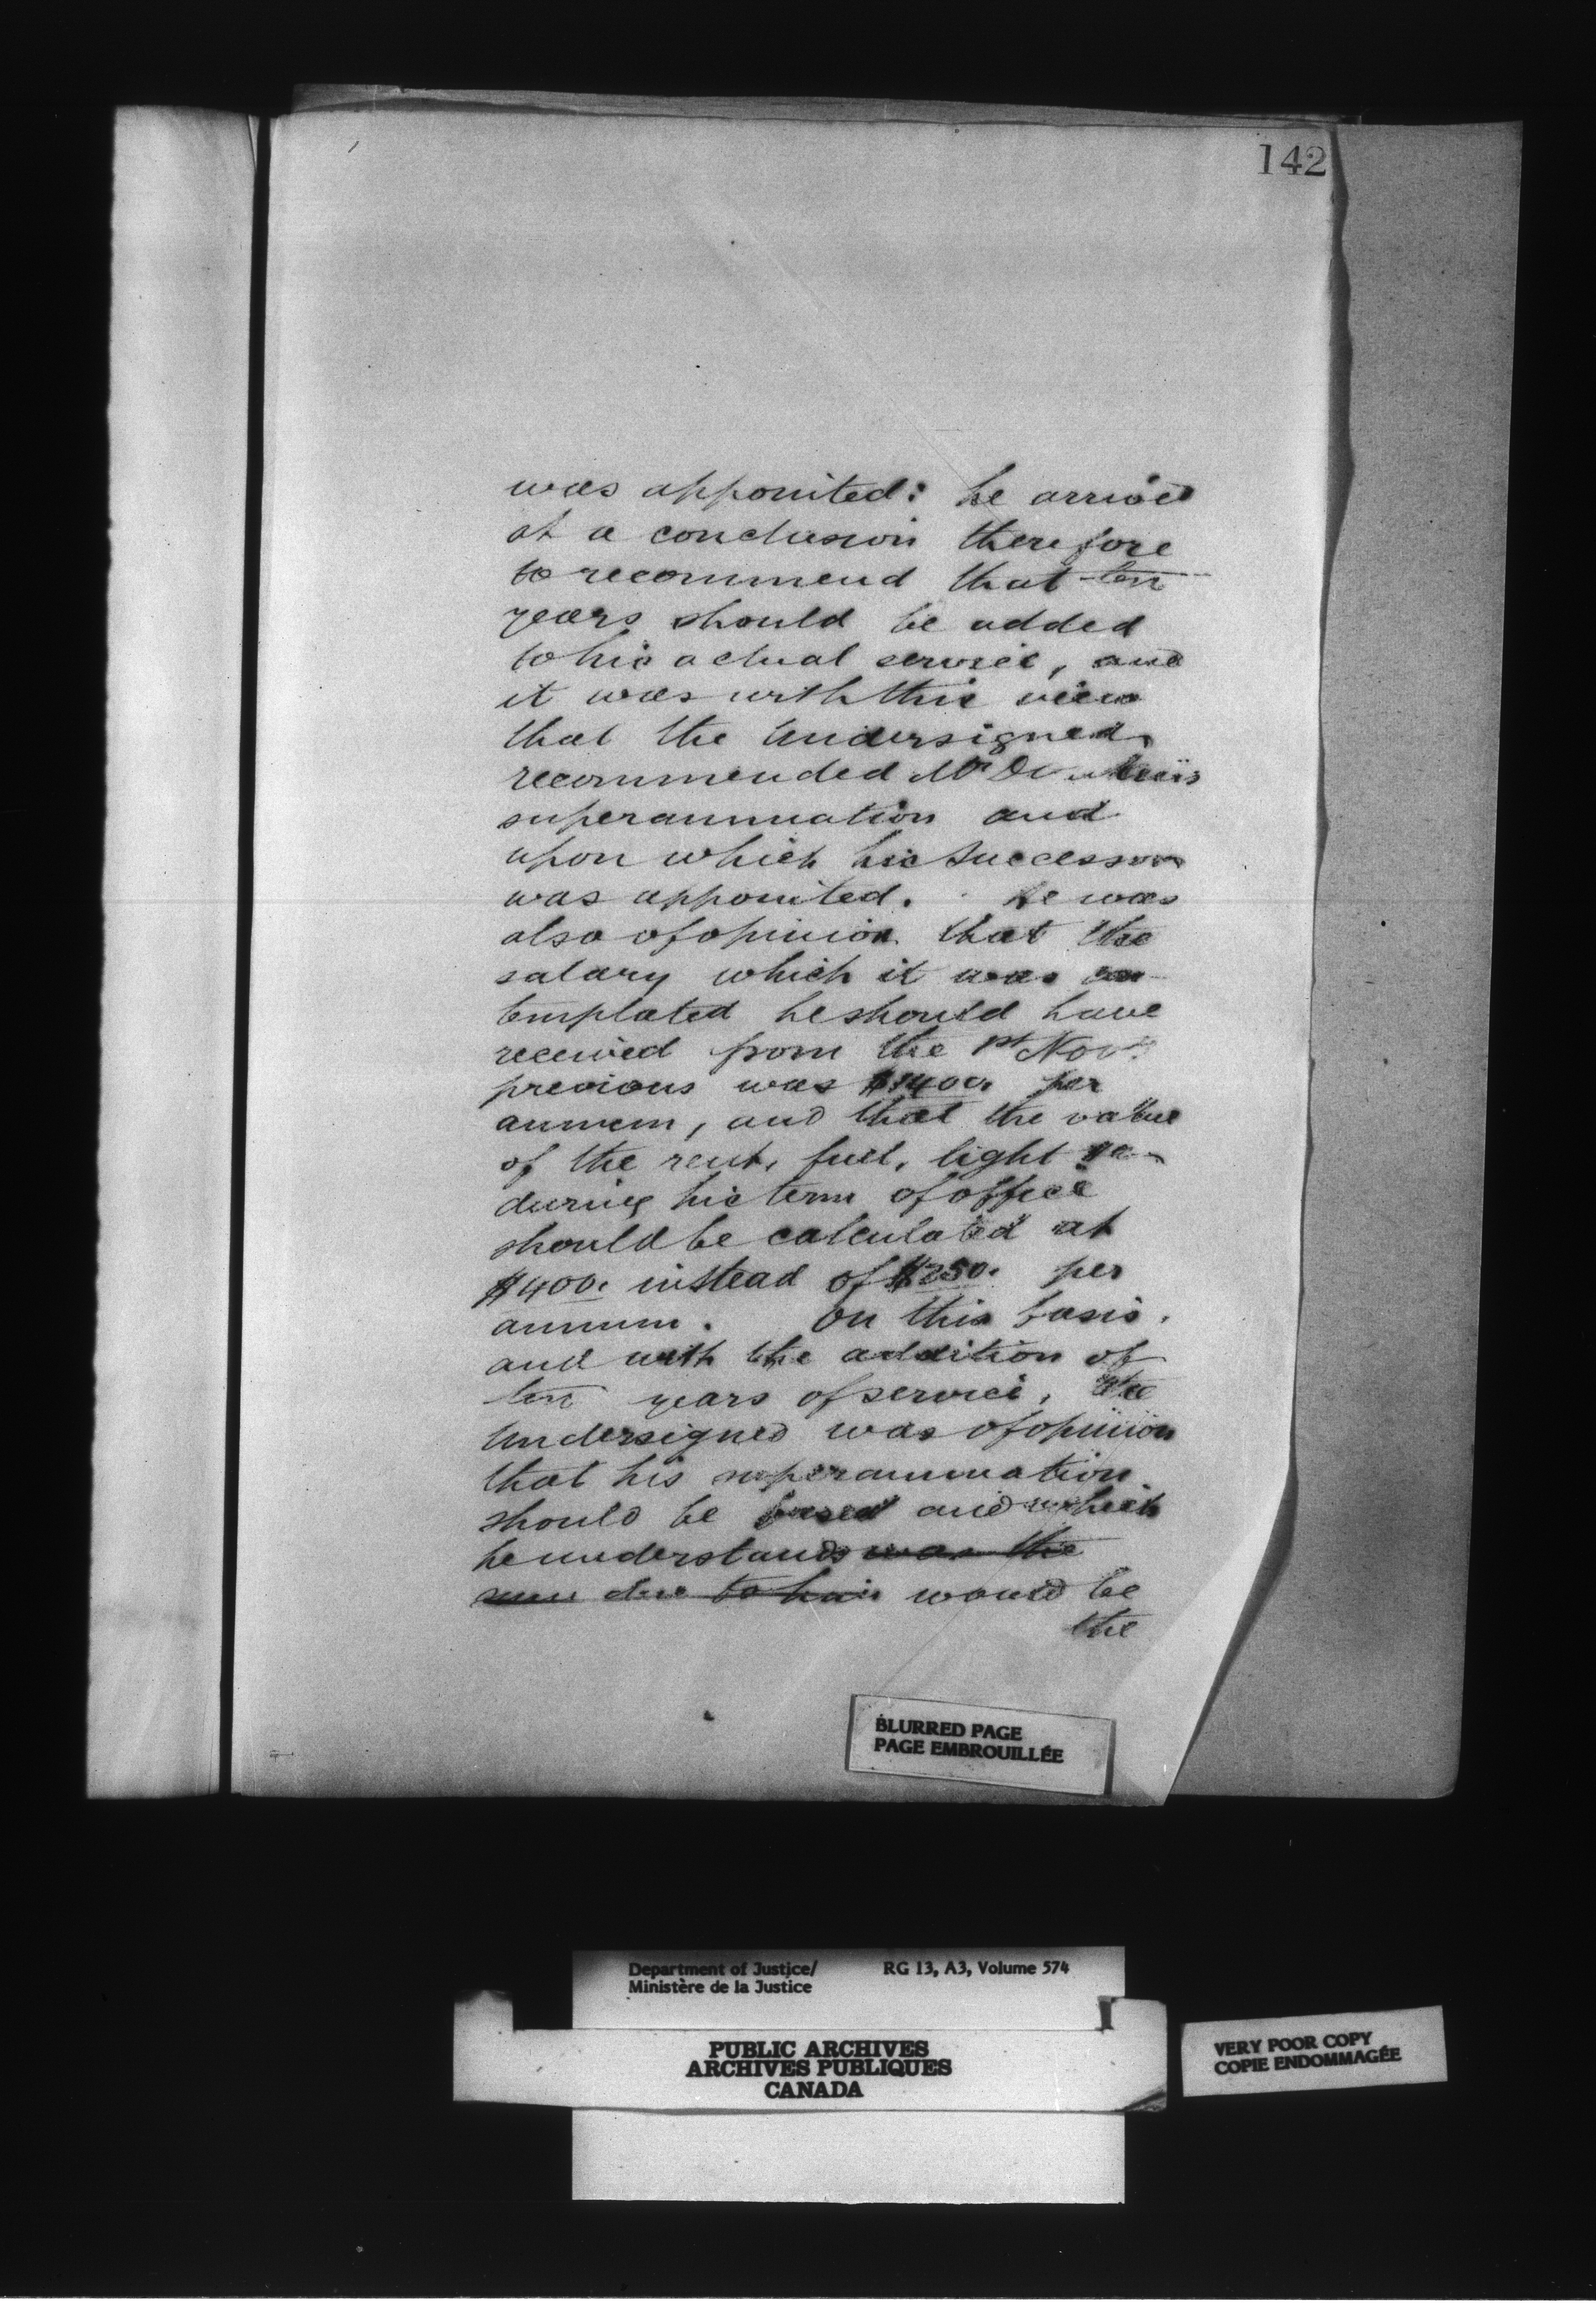 142
was appointed: he arrived
at a conclusion therefore
to recommend that ten
years should be added
to his actual service, and
it was with this view
that the Undersigned
recommended Mr
superannuation and
upon which his successor
was appointed. He was
also of opinion that the
salary which it was con-
templated he should have
received from the 1st Novr
previous was $1400. per
annum, and that the value
of the rent, fuel, light &c
during his term of office
should be calculated at
$400. instead of $250. per
annum. On this basis,
and with the addition of
ten years of service, the
Undersigned was of opinion
that his superannuation
should be based and which
he understands was the
sum due to him would be
the
BLURRED PAGE
PAGE EMBROUILLÉE
Department of Justice/ RG 13, A3, Volume 574
Ministère de la Justice
PUBLIC ARCHIVES
ARCHIVES PUBLIQUES
CANADA
VERY POOR COPY
COPIE ENDOMMAGÉE